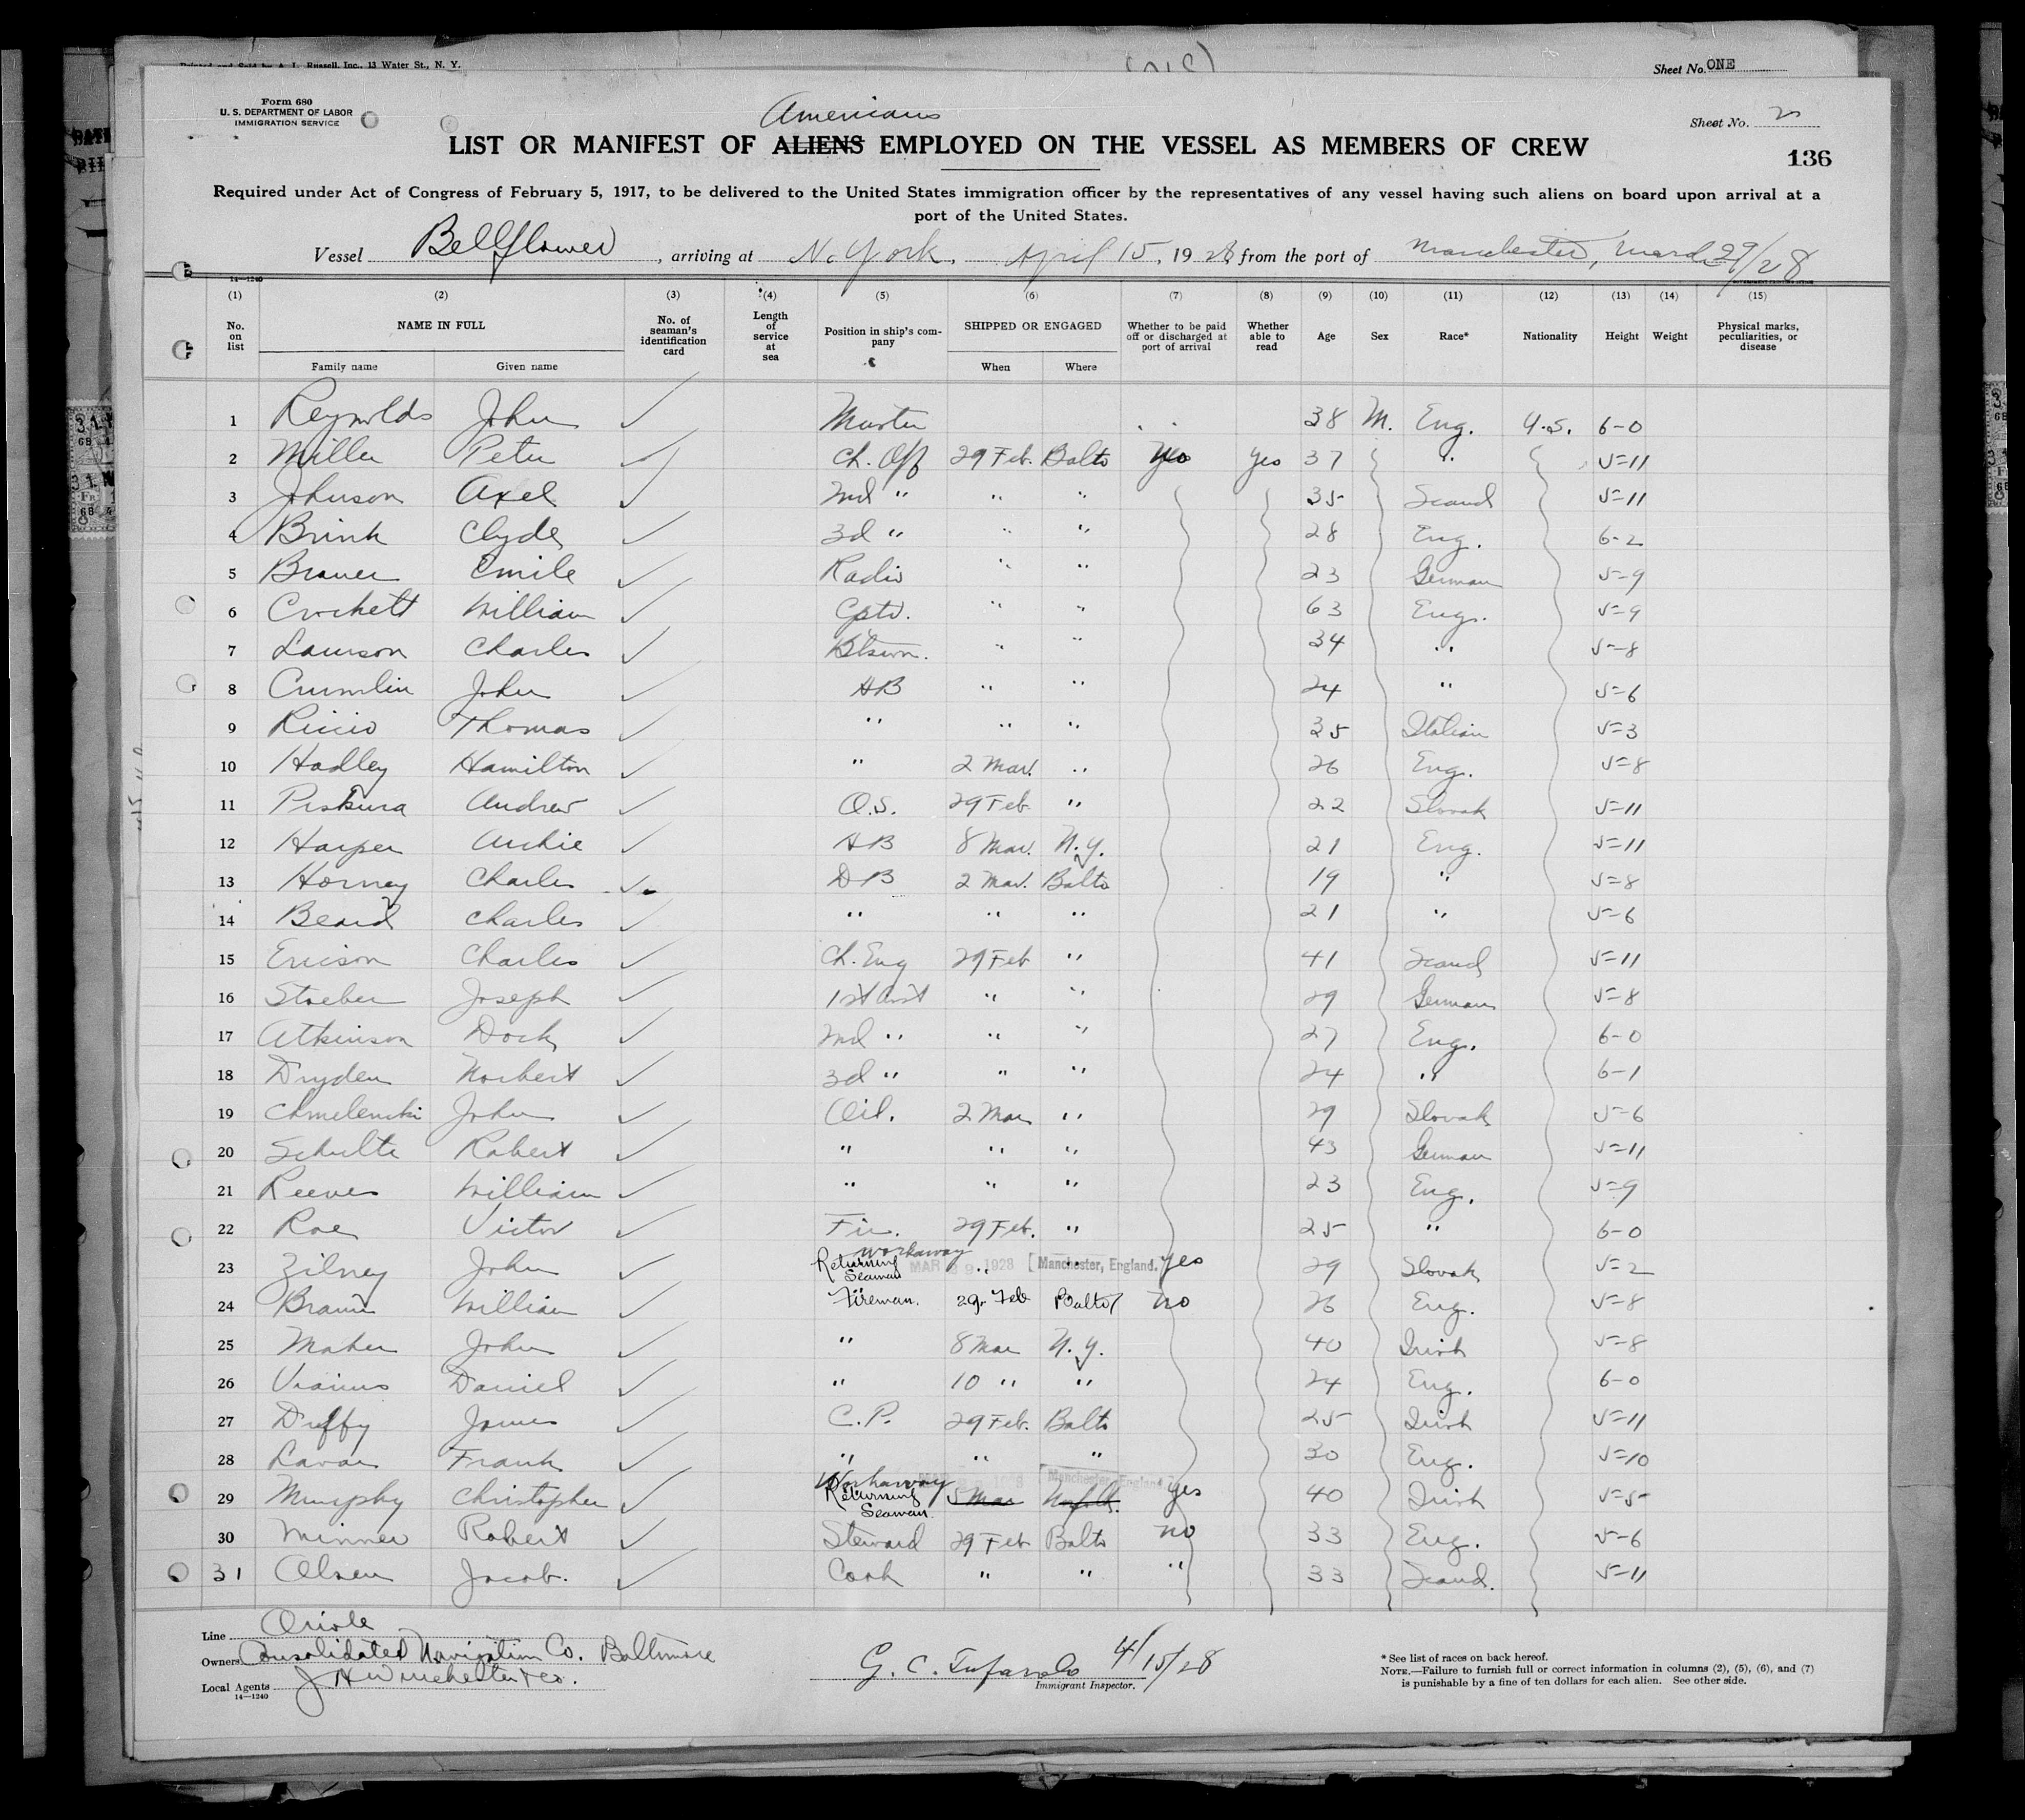 Printed and Sold by A. L. Russell, Inc., 13 Water St., N. Y.
Sheet No. ONE
Form 680
U. S. DEPARTMENT OF LABOR
IMMIGRATION SERVICE
Americans
Sheet No. 2
LIST OR MANIFEST OF ALIENS EMPLOYED ON THE VESSEL AS MEMBERS OF CREW
136
Required under Act of Congress of February 5, 1917, to be delivered to the United States immigration officer by the representatives of any vessel having such aliens on board upon arrival at a
port of the United States.
Vessel Bellflower, arriving at N. York, April 15, 1928, from the port of Manchester, March 29/28
14—1240
(1) (2) (3) (4) (5) (6) (7) (8) (9) (10) (11) (12) (13) (14) (15)
No. on list NAME IN FULL No. of seaman's identification card Length of service at sea Position in ship's company SHIPPED OR ENGAGED Whether to be paid off or discharged at port of arrival Whether able to read Age Sex Race* Nationality Height Weight Physical marks, peculiarities, or disease
Family name Given name When Where
1 Reynolds John Master 38 M. Eng. U.S. 6-0
2 Miller Peter Ch. Off 29 Feb. Balto yes yes 37 " 5-11
3 Johnson Axel 2nd " " " 35 Scand 5-11
4 Brink Clyde 3d " " " 28 Eng. 6-2
5 Brauer Emile Radio " " 23 German 5-9
6 Crockett William Cptr. " " 63 Eng. 5-9
7 Lawson Charles Btswn. " " 34 " 5-8
8 Crumlin John AB " " 24 " 5-6
9 Riccio Thomas " " " 35 Italian 5-3
10 Hadley Hamilton " 2 Mar. " 26 Eng. 5-8
11 Piskura Andrew O.S. 29 Feb. " 22 Slovak 5-11
12 Harper Archie AB 8 Mar. N.Y. 21 Eng. 5-11
13 Horney Charles DB 2 Mar. Balto 19 " 5-8
14 Beard Charles " " " 21 " 5-6
15 Ericson Charles Ch. Eng 29 Feb " 41 Scand 5-11
16 Stoeber Joseph 1st Asst " " 29 German 5-8
17 Atkinson Dock 2nd " " " 27 Eng. 6-0
18 Dryden Norbert 3d " " " 24 " 6-1
19 Chmelenski John Oil. 2 Mar " 29 Slovak 5-6
20 Schulte Robert " " " 43 German 5-11
21 Reeves William " " " 23 Eng. 5-9
22 Roe Victor Fir. 29 Feb. " 25 " 6-0
23 Zilney John workaway Returning Seaman MAR 29 1928 Manchester, England. yes 29 Slovak 5-2
24 Braun William Fireman. 29 Feb Balto no 26 Eng. 5-8
25 Maher John " 8 Mar N.Y. 40 Irish 5-8
26 Daniel " 10 " " 24 Eng. 6-0
27 Duffy James C.P. 29 Feb. Balto 25 Irish 5-11
28 Frank " " " 30 Eng. 5-10
29 Murphy Christopher Workaway Returning Seaman. 5 Mar Norfolk. Manchester, England yes 40 Irish 5-5
30 Minner Robert Steward 29 Feb Balto no 33 Eng. 5-6
31 Olsen Jacob. Cook " " " 33 Scand. 5-11
Line Oriole
Owners Consolidated Navigation Co. Baltimore
Local Agents J H Winchester & Co.
14—1240
G. C. 4/15/28
Immigrant Inspector.
* See list of races on back hereof.
NOTE.—Failure to furnish full or correct information in columns (2), (5), (6), and (7)
is punishable by a fine of ten dollars for each alien. See other side.